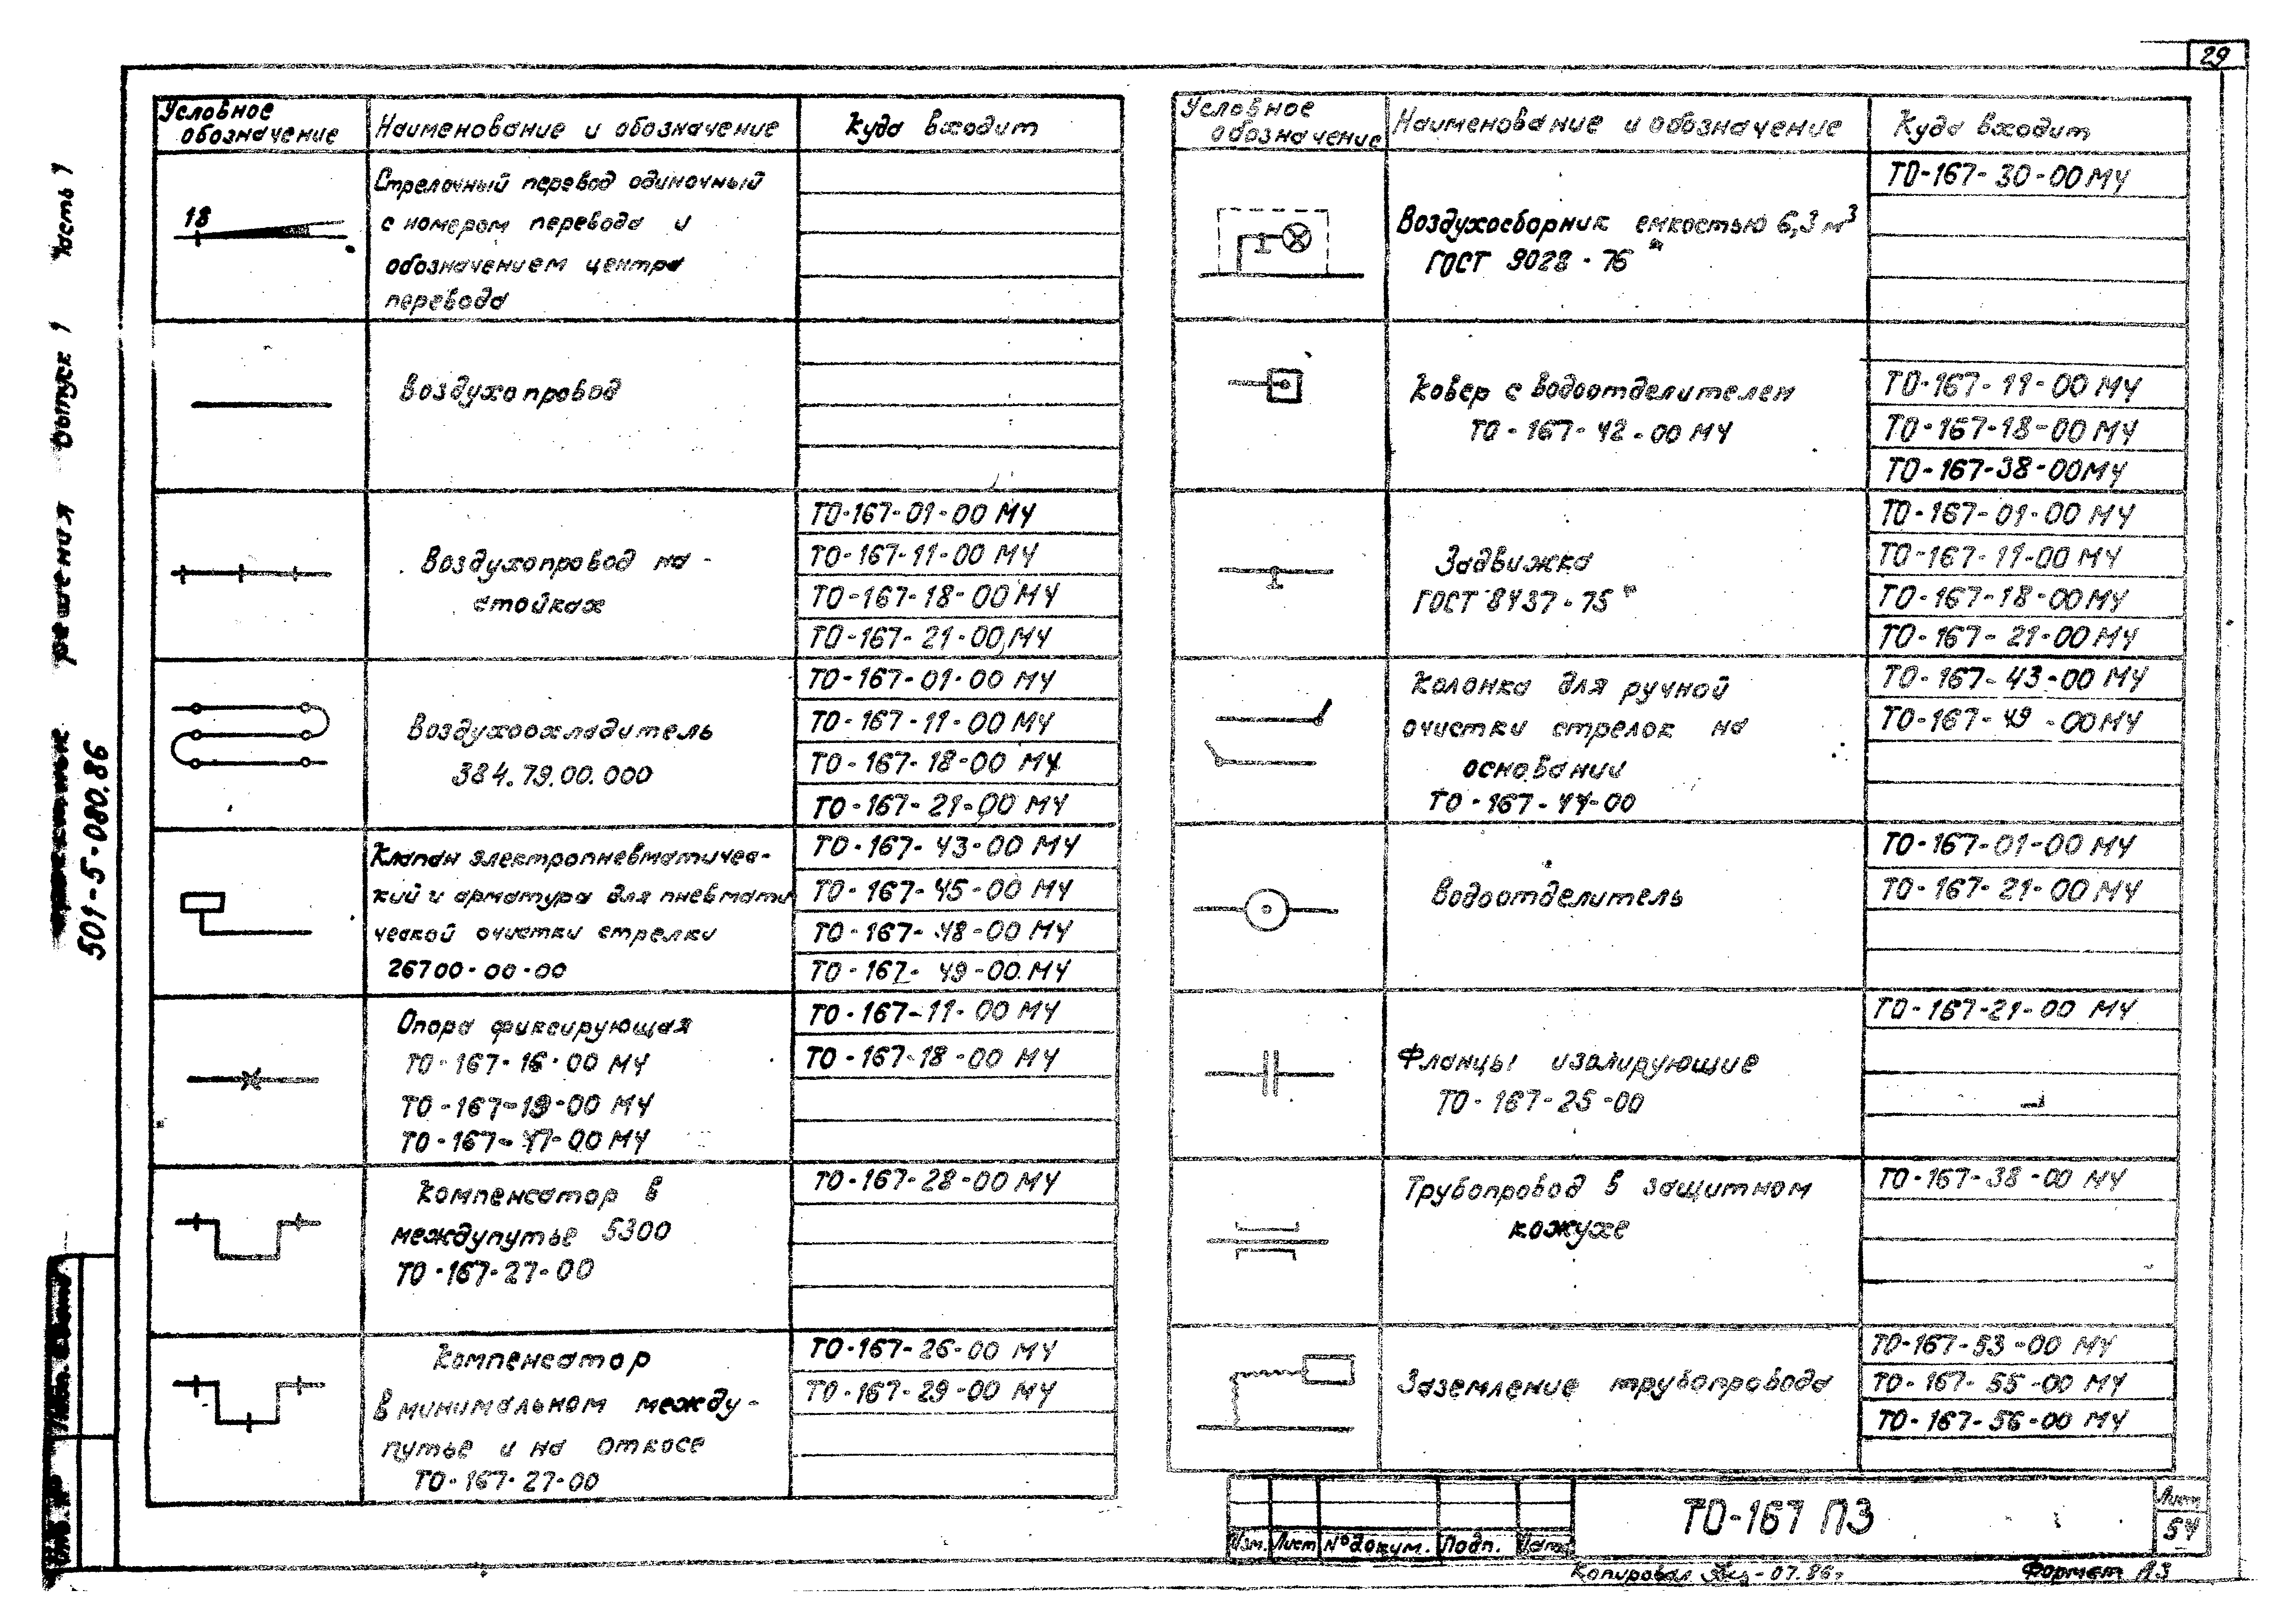 29
Условное
обозначение
Наименование и обозначение
Куда входит
18
Стрелочный перевод одиночный
с номером перевода и
обозначением центра
перевода
Воздухопровод
Воздухопровод на -
стойках
ТО-167-01-00 МЧ
ТО-167-11-00 МЧ
ТО-167-18-00 МЧ
ТО-167-21-00 МЧ
Воздухоохладитель
384.79.00.000
ТО-167-01-00 МЧ
ТО-167-11-00 МЧ
ТО-167-18-00 МЧ
ТО-167-21-00 МЧ
Клапан электропневматичес-
кий и арматура для пневмати
ческой очистки стрелки
26700-00-00
ТО-167-43-00 МЧ
ТО-167-45-00 МЧ
ТО-167-48-00 МЧ
ТО-167-49-00 МЧ
Опора фиксирующая
ТО-167-16-00 МЧ
ТО-167-19-00 МЧ
ТО-167-47-00 МЧ
ТО-167-11-00 МЧ
ТО-167-18-00 МЧ
Компенсатор в
междупутье 5300
ТО-167-27-00
ТО-167-28-00 МЧ
Компенсатор
в минимальном между-
путье и на откосе
ТО-167-27-00
ТО-167-26-00 МЧ
ТО-167-29-00 МЧ
Условное
обозначение
Наименование и обозначение
Куда входит
Воздухосборник емкостью 6,3 м³
ГОСТ 9028-76*
ТО-167-30-00 МЧ
Ковер с водоотделителем
ТО-167-42-00 МЧ
ТО-167-11-00 МЧ
ТО-167-18-00 МЧ
ТО-167-38-00 МЧ
Задвижка
ГОСТ 8437-75*
ТО-167-01-00 МЧ
ТО-167-11-00 МЧ
ТО-167-18-00 МЧ
ТО-167-21-00 МЧ
Колонка для ручной
очистки стрелок на
основании
ТО-167-44-00
ТО-167-43-00 МЧ
ТО-167-49-00 МЧ
Водоотделитель
ТО-167-01-00 МЧ
ТО-167-21-00 МЧ
Фланцы изолирующие
ТО-167-25-00
ТО-167-21-00 МЧ
Трубопровод в защитном
кожухе
ТО-167-38-00 МЧ
Заземление трубопровода
ТО-167-53-00 МЧ
ТО-167-55-00 МЧ
ТО-167-56-00 МЧ
Изм. Лист № докум. Подп. Дата
ТО-167 ПЗ
Лист
54
Копировал -07.86г
Формат А3
решения Выпуск 1 Часть 1
501-5-080.86